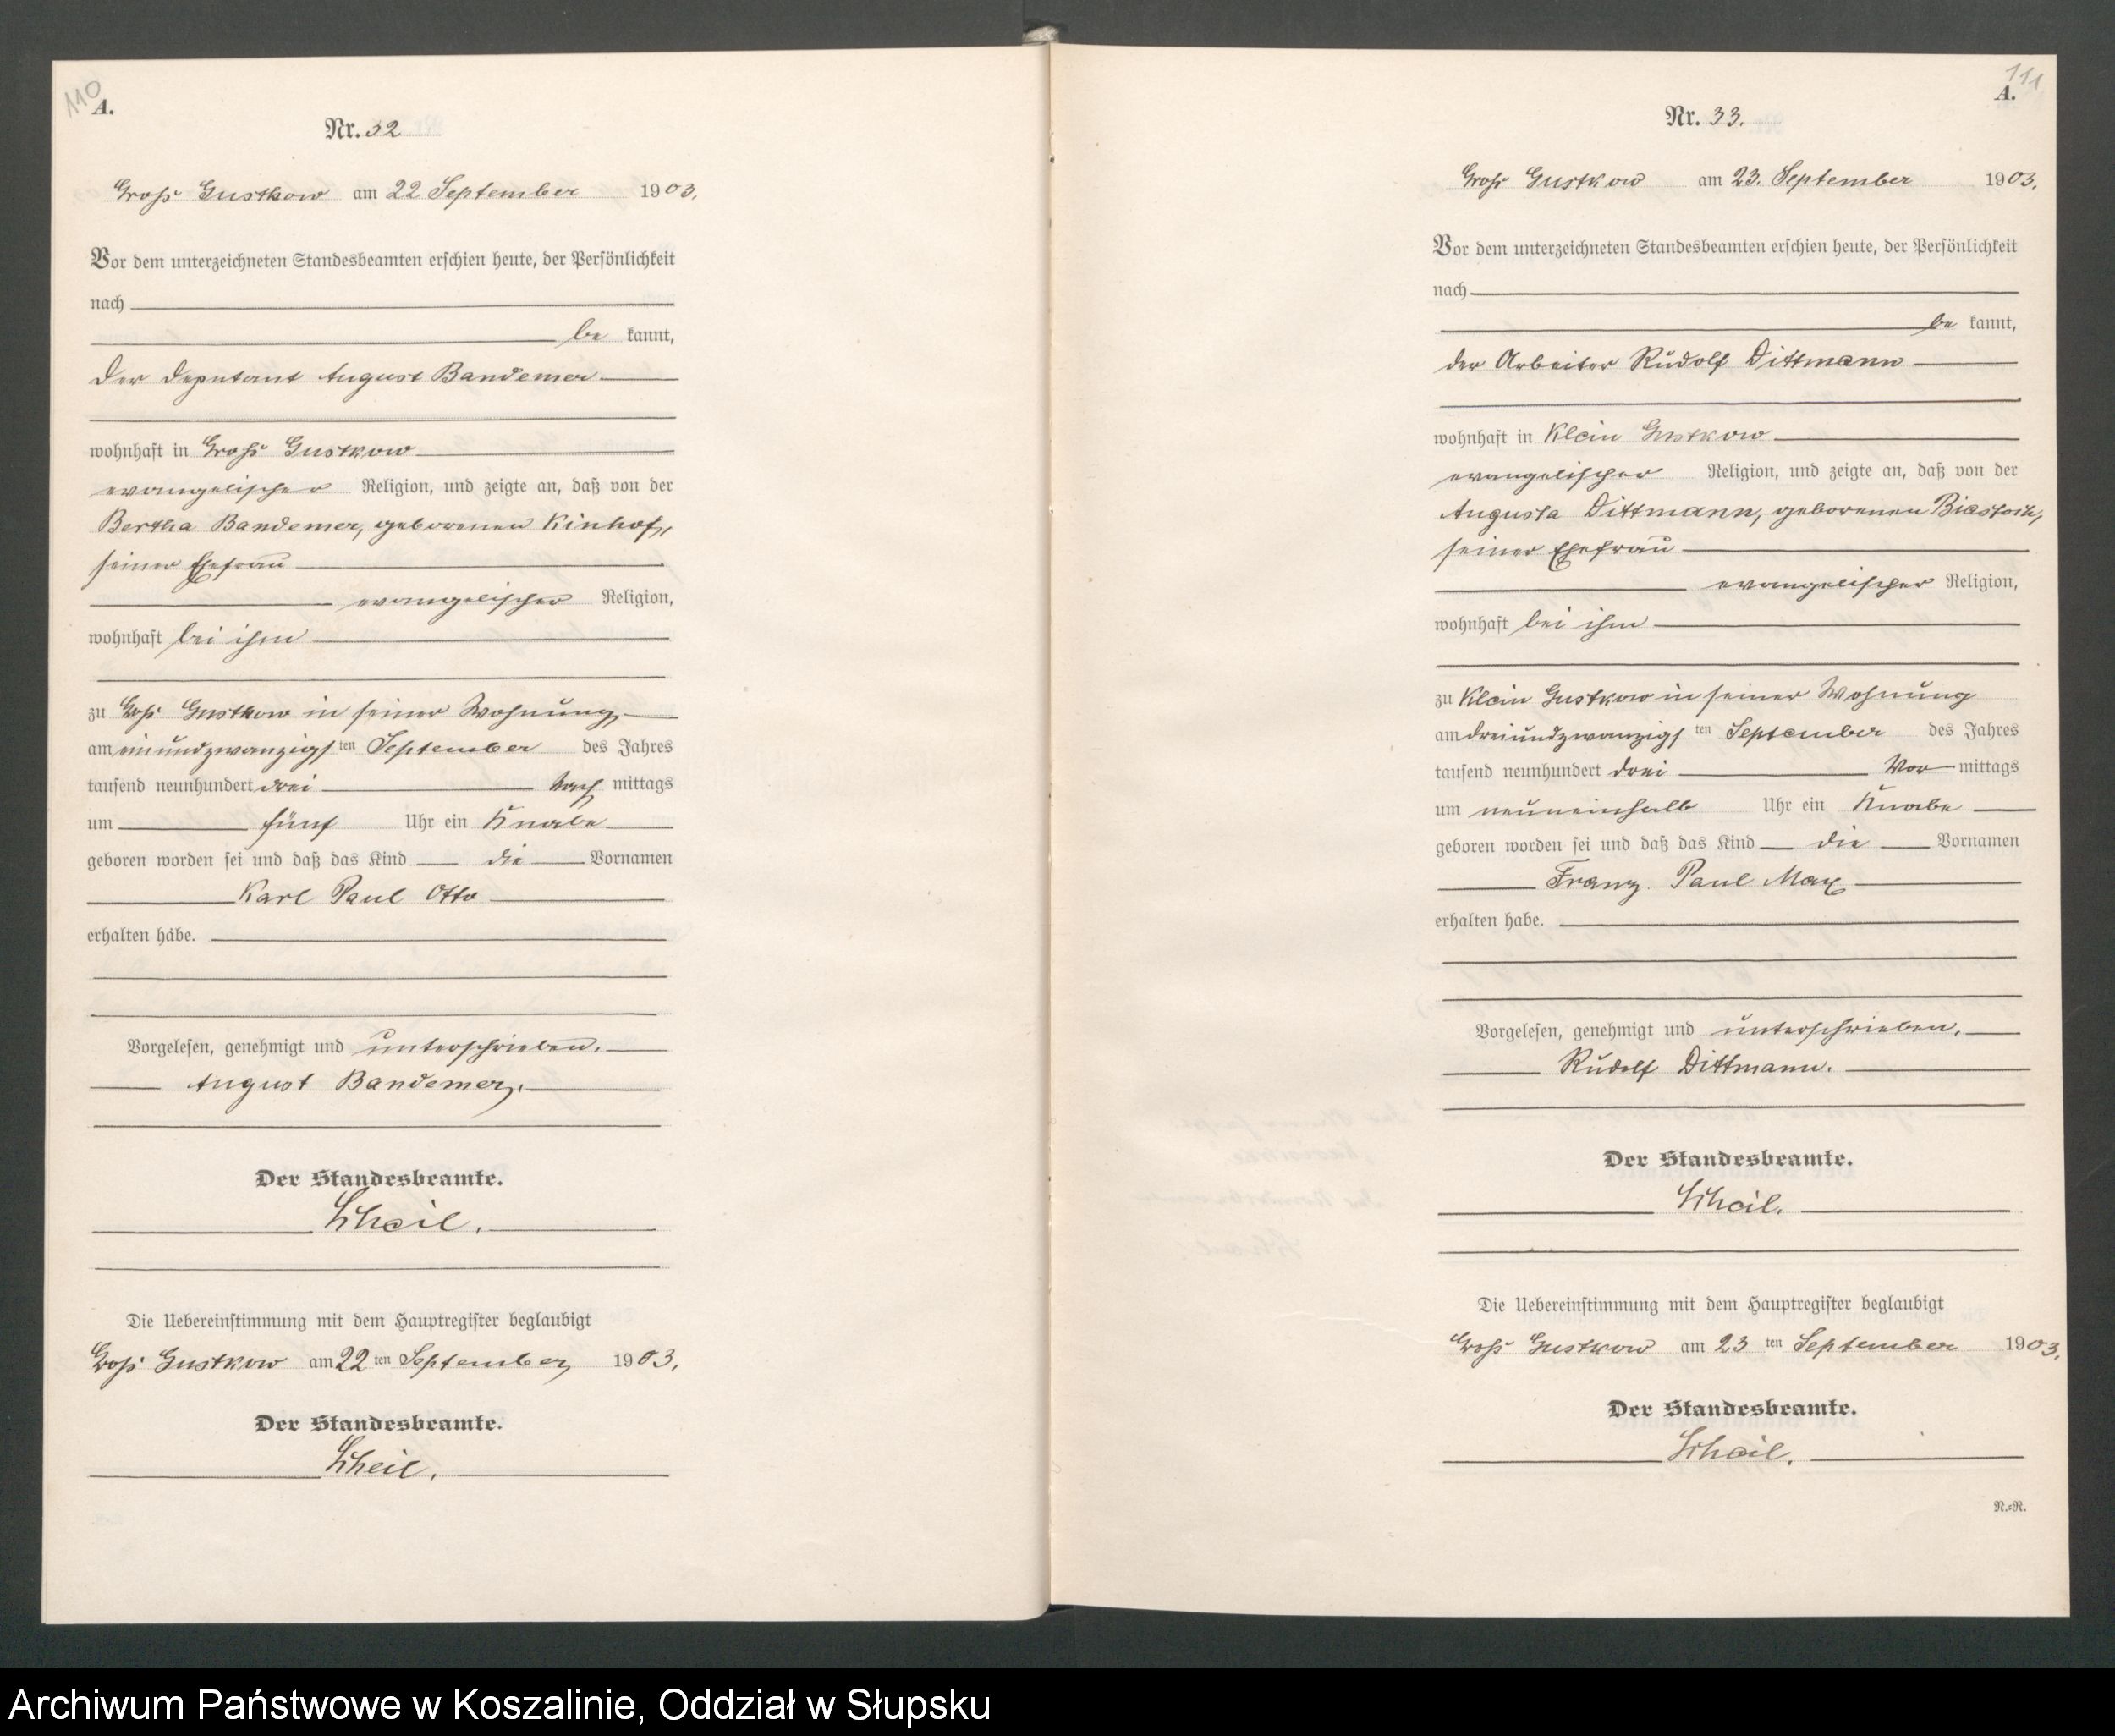 110
A.
Nr. 32
Groß Gustkow am 22 September 1903.
Vor dem unterzeichneten Standesbeamten erschien heute, der Persönlichkeit
nach
be kannt,
der Deputant August Bandemer
wohnhaft in Groß Gustkow
evangelischer Religion, und zeigte an, daß von der
Bertha Bandemer, geborenen Kinhof,
seiner Ehefrau
evangelischer Religion,
wohnhaft bei ihm
zu Groß Gustkow in seiner Wohnung
am einundzwanzigs ten September des Jahres
tausend neunhundert drei Nach mittags
um fünf Uhr ein Knabe
geboren worden sei und daß das Kind die Vornamen
Karl Paul Otto
erhalten habe.
Vorgelesen, genehmigt und unterschrieben.
August Bandemer.
Der Standesbeamte.
Scheil.
Die Uebereinstimmung mit dem Hauptregister beglaubigt
Groß Gustkow am 22 ten September 1903.
Der Standesbeamte.
Scheil.
111
A.
Nr. 33.
Groß Gustkow am 23. September 1903.
Vor dem unterzeichneten Standesbeamten erschien heute, der Persönlichkeit
nach
be kannt,
der Arbeiter Rudolf Dittmann
wohnhaft in Klein Gustkow
evangelischer Religion, und zeigte an, daß von der
Augusta Dittmann, geborenen Biastock,
seiner Ehefrau
evangelischer Religion,
wohnhaft bei ihm
zu Klein Gustkow in seiner Wohnung
am dreiundzwanzigs ten September des Jahres
tausend neunhundert drei Vor mittags
um neuneinhalb Uhr ein Knabe
geboren worden sei und daß das Kind die Vornamen
Franz Paul Max
erhalten habe.
Vorgelesen, genehmigt und unterschrieben.
Rudolf Dittmann.
Der Standesbeamte.
Scheil.
Die Uebereinstimmung mit dem Hauptregister beglaubigt
Groß Gustkow am 23 ten September 1903.
Der Standesbeamte.
Scheil.
R.=R.
Archiwum Państwowe w Koszalinie, Oddział w Słupsku